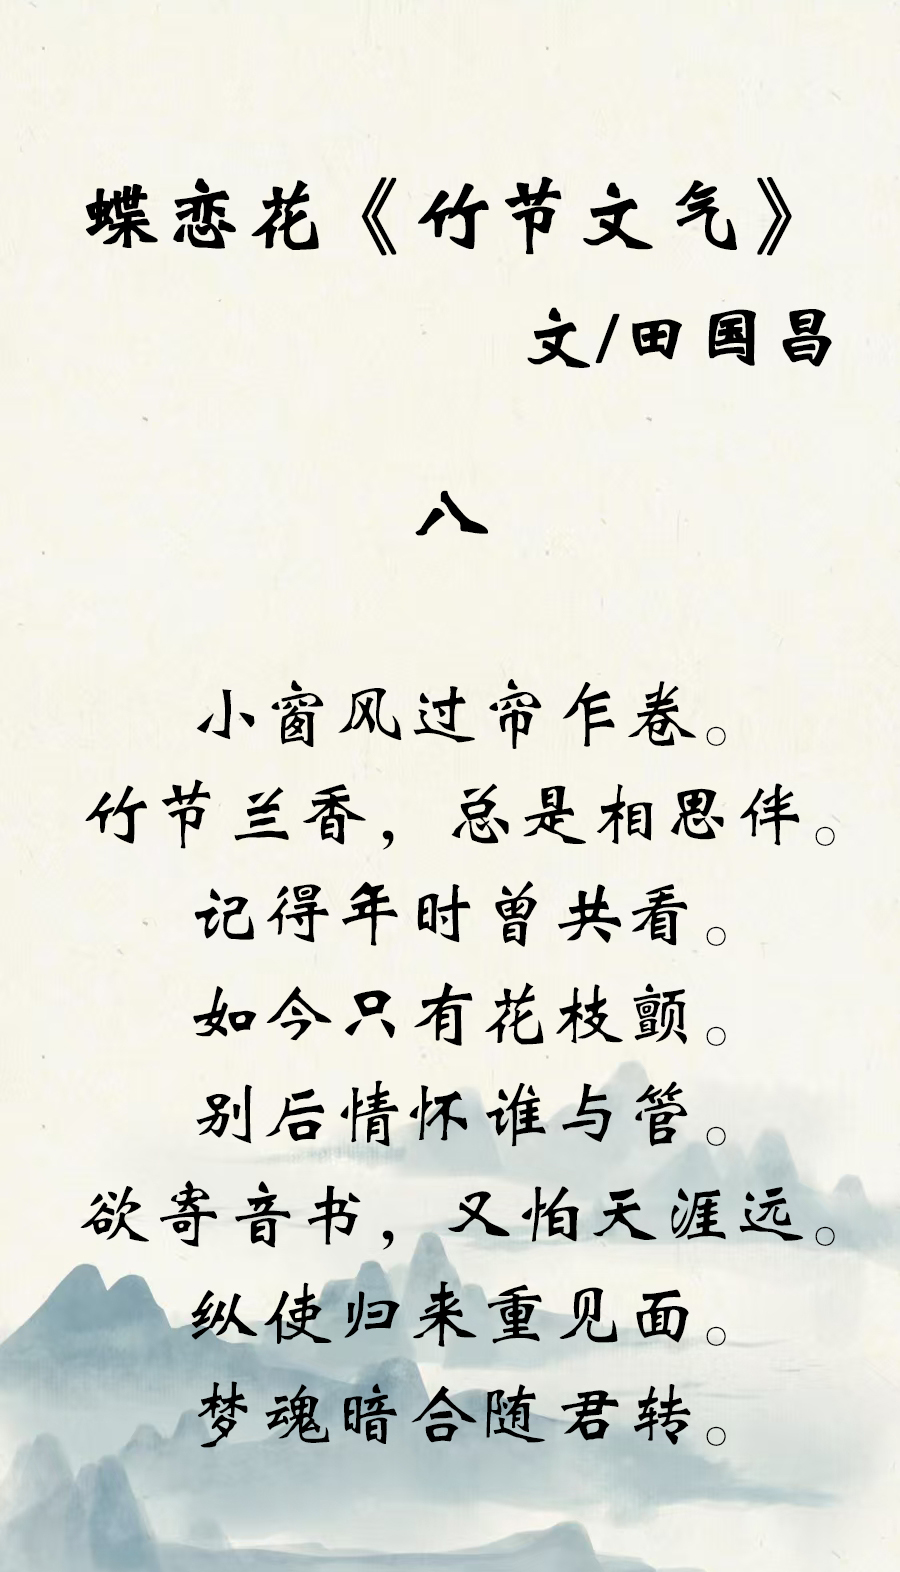 蝶恋花《竹节文气》
文/田国昌
八
小窗风过帘乍卷。
竹节兰香，总是相思伴。
记得年时曾共看。
如今只有花枝颤。
别后情怀谁与管。
欲寄音书，又怕天涯远。
纵使归来重见面。
梦魂暗合随君转。